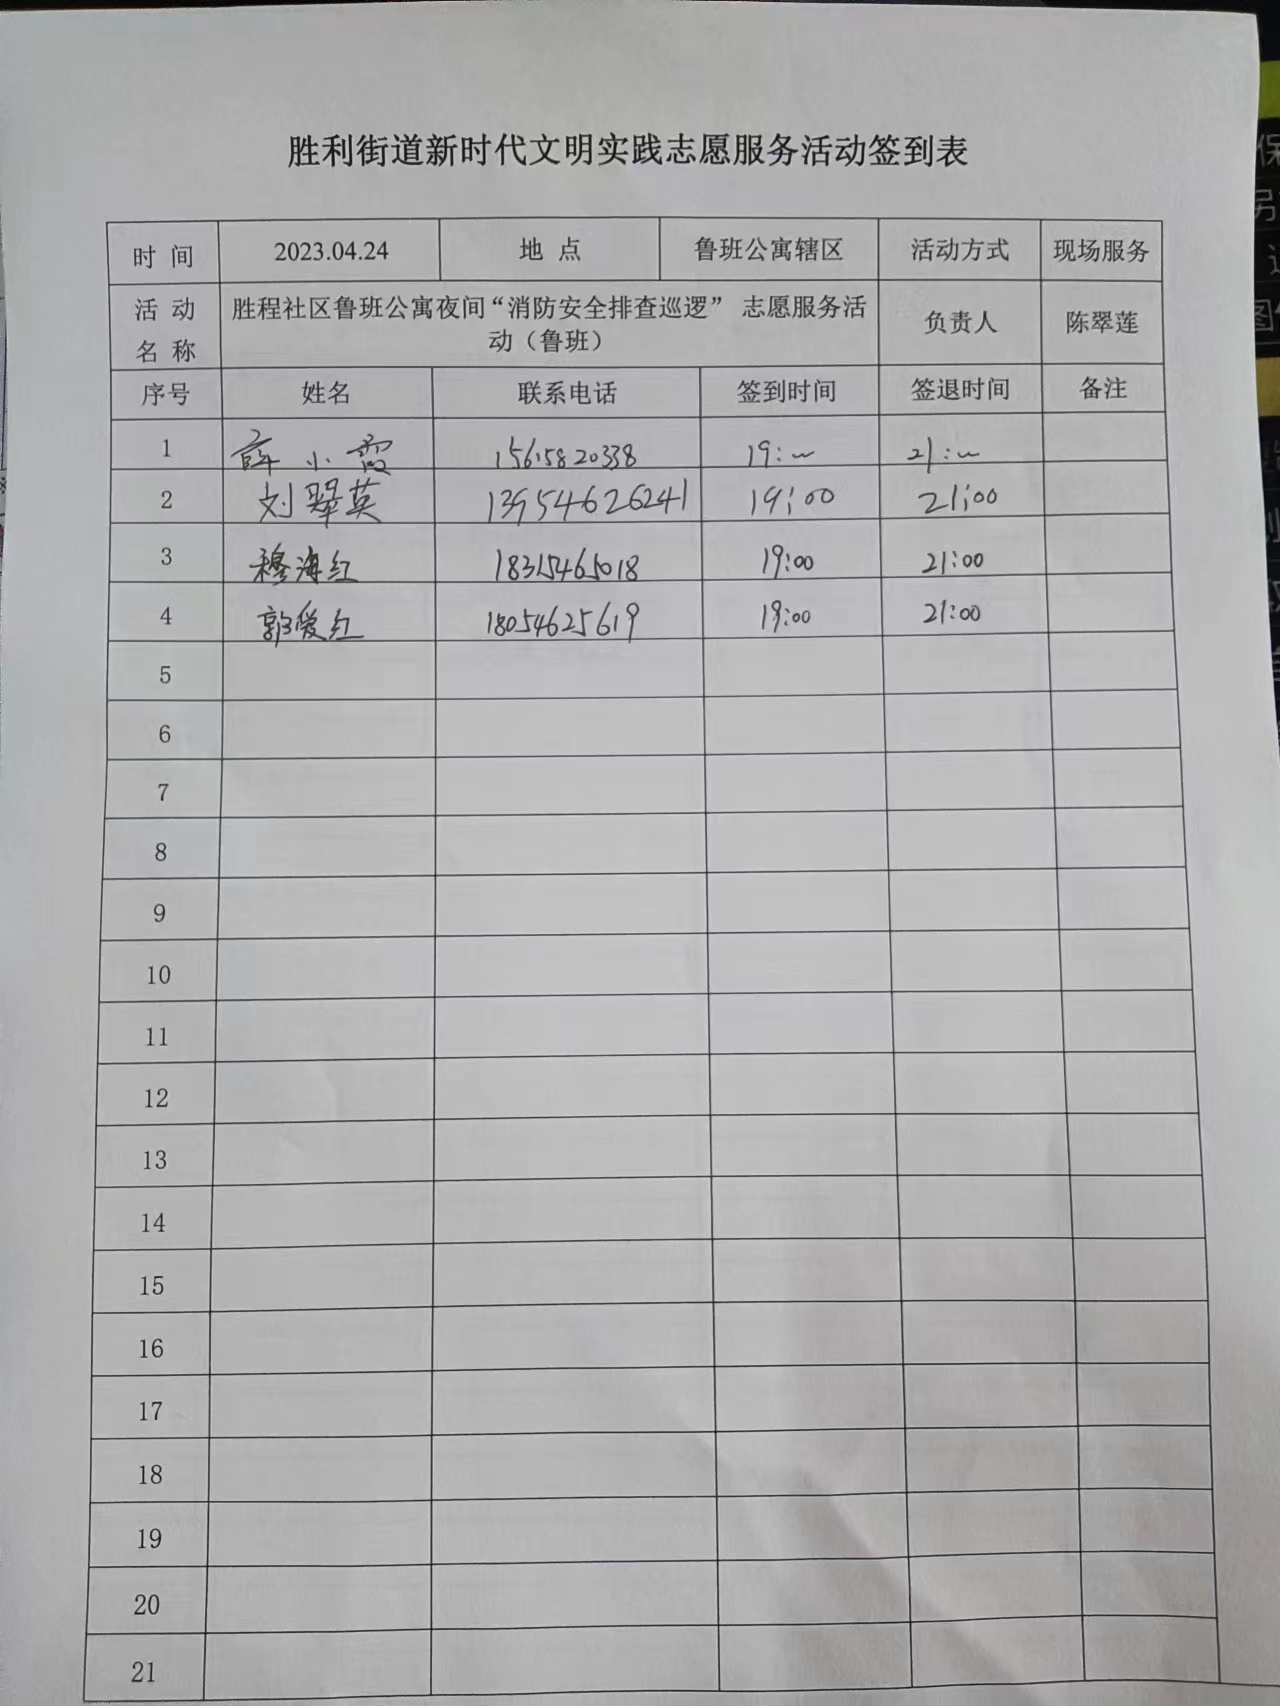 胜利街道新时代文明实践志愿服务活动签到表
时 间 2023.04.24 地 点 鲁班公寓辖区 活动方式 现场服务
活 动 名 称 胜程社区鲁班公寓夜间“消防安全排查巡逻” 志愿服务活动（鲁班） 负责人 陈翠莲
序号 姓名 联系电话 签到时间 签退时间 备注
1 薛小霞 15615820338 19:~ 21:~
2 刘翠英 13954626241 19:00 21:00
3 穆海红 18315465018 19:00 21:00
4 郭爱红 18054625619 19:00 21:00
5
6
7
8
9
10
11
12
13
14
15
16
17
18
19
20
21